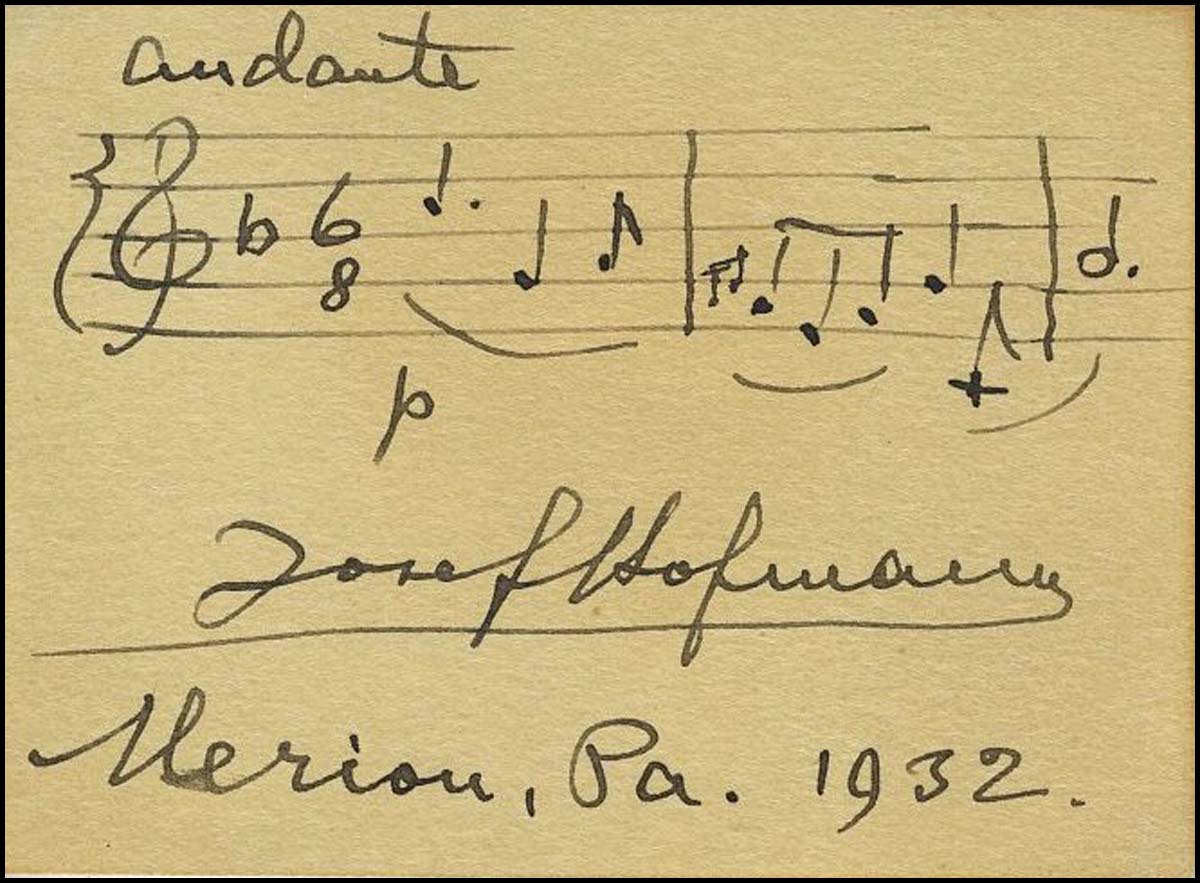 andante
6
8
p
Josef Hofmann
Merion, Pa. 1932.